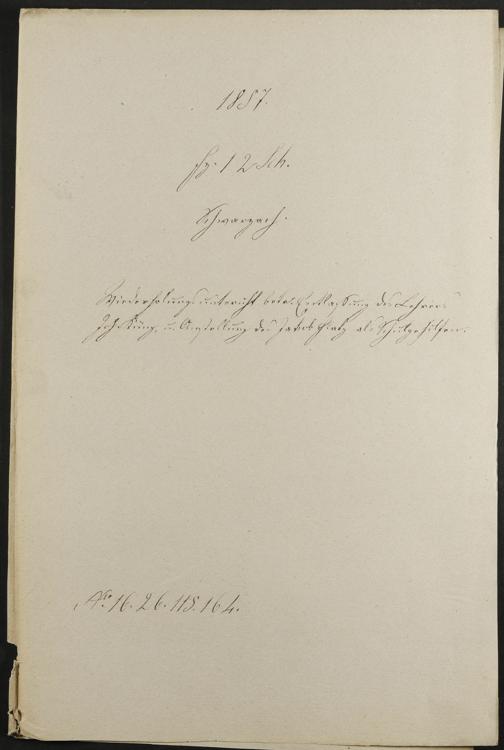 1857.
Fz. 12 Sch.
Schwarzach.
Wiederholungsunterricht betr. Entlassung des Lehrers
Joh. Küng, u. Anstellung des Jakob als Schulgehilfen.
No. 16. 26. 118. 164.